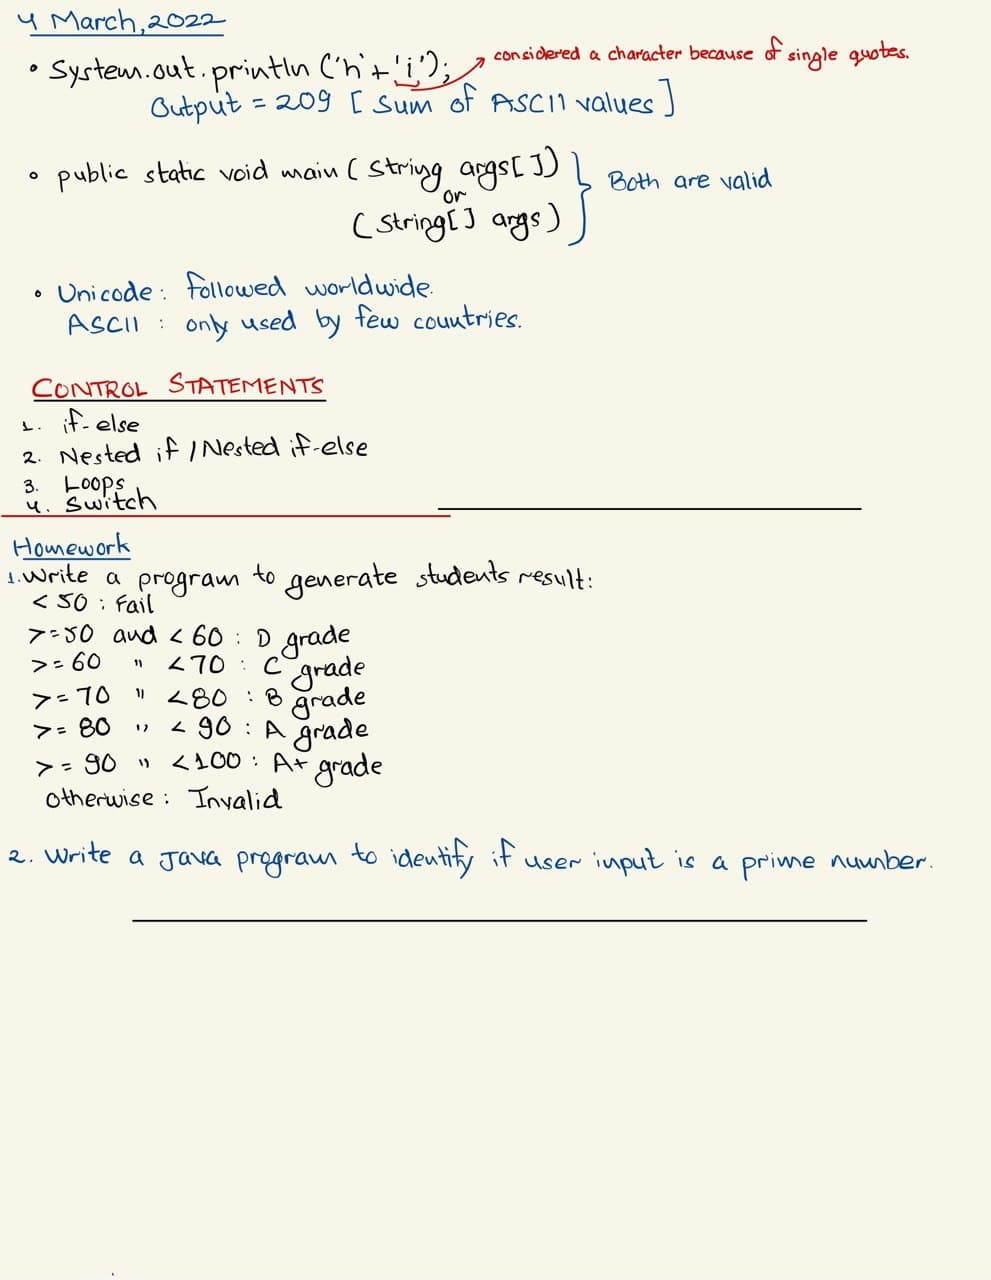 4 March, 2022
• System.out.println ('h'+'i'); → considered a character because of single quotes.
Output = 209 [ Sum of ASCII values ]
• public static void main ( String args[ ])
or
( String[ ] args )
} Both are valid
• Unicode : followed worldwide.
ASCII : only used by few countries.
CONTROL STATEMENTS
1. if-else
2. Nested if / Nested if-else
3. Loops
4. Switch
Homework
1. Write a program to generate students result:
< 50 : Fail
>=50 and < 60 : D grade
>= 60 " <70 : C grade
>= 70 " <80 : B grade
>= 80 " < 90 : A grade
>= 90 " <100 : A+ grade
otherwise : Invalid
2. Write a Java program to identify if user input is a prime number.